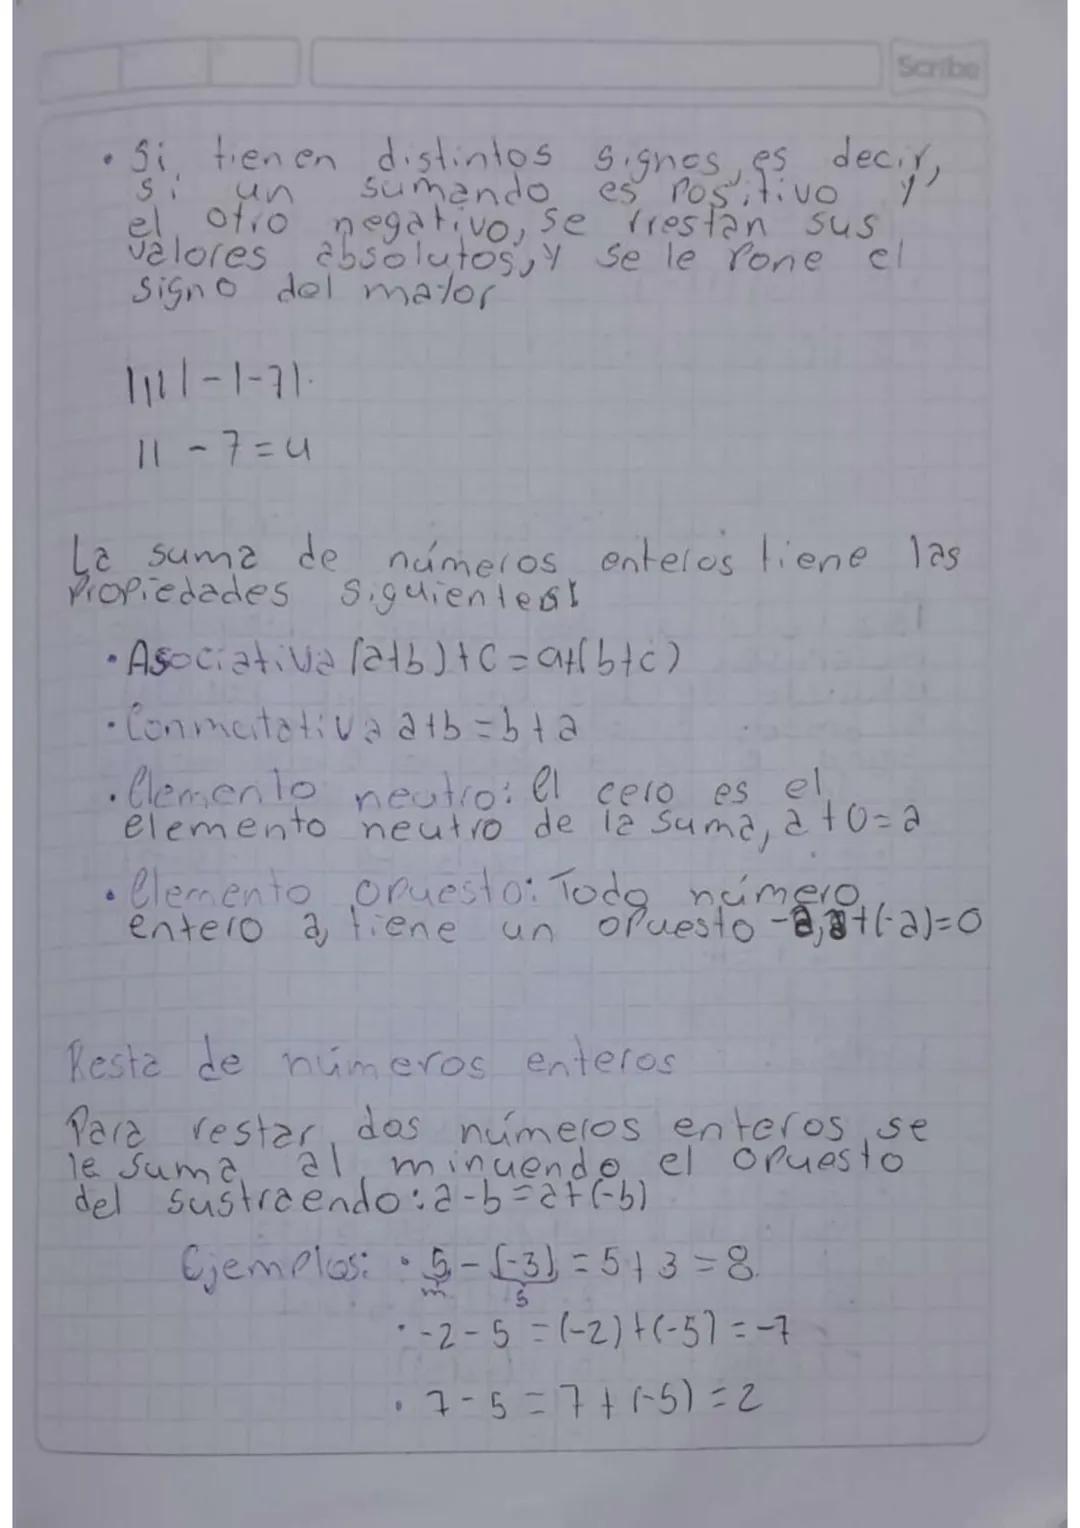 Scribe
• Si tienen distintos signos, es decir,
si un sumando es positivo y
el otro negativo, se rrestan sus
valores absolutos, y se le pone el
signo del mayor
|11|-|-7|.
11 - 7 = 4
La suma de números enteros tiene las
propiedades siguientes:
• Asociativa (a+b)+c=a+(b+c)
• Conmutativa a+b=b+a
• Elemento neutro: El cero es el
elemento neutro de la suma, a+0=a
• Elemento opuesto: Todo número
entero a, tiene un opuesto -a, a+(-a)=0
Resta de números enteros
Para restar dos números enteros se
le suma al minuendo el opuesto
del sustraendo: a-b=a+(-b)
Ejemplos: • 5-(-3)=5+3=8.
m s
• -2-5=(-2)+(-5)=-7
• 7-5=7+(-5)=2